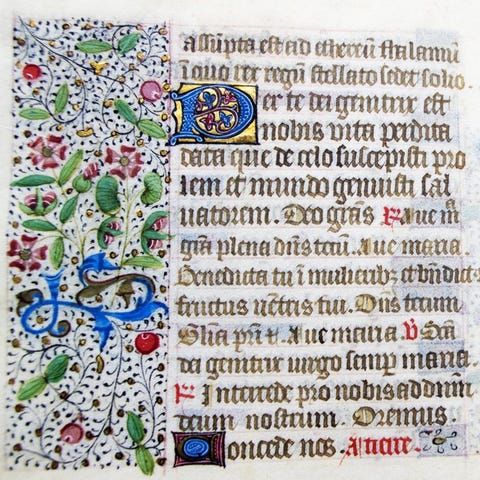 assūpta est ad ethereū thalamū
ī quo rex regū stellato sedet solio.
Per te dei genitrix est
nobis vita perdita
data que de celo suscepisti pro
lem et mundo genuisti sal
uatorem. Deo grās R Aue mā
grā plena dn̄s tecū. Aue maria.
Benedicta tu ī mulieribꝫ et bn̄dict
fructus uētris tui. Dn̄s tecum.
Glīa prī t. Aue maria. V Scā
dei genitrix uirgo semp maria.
R Intercede pro nobis ad dnm̄
deum nostrum. Oremus.
Concede nos.